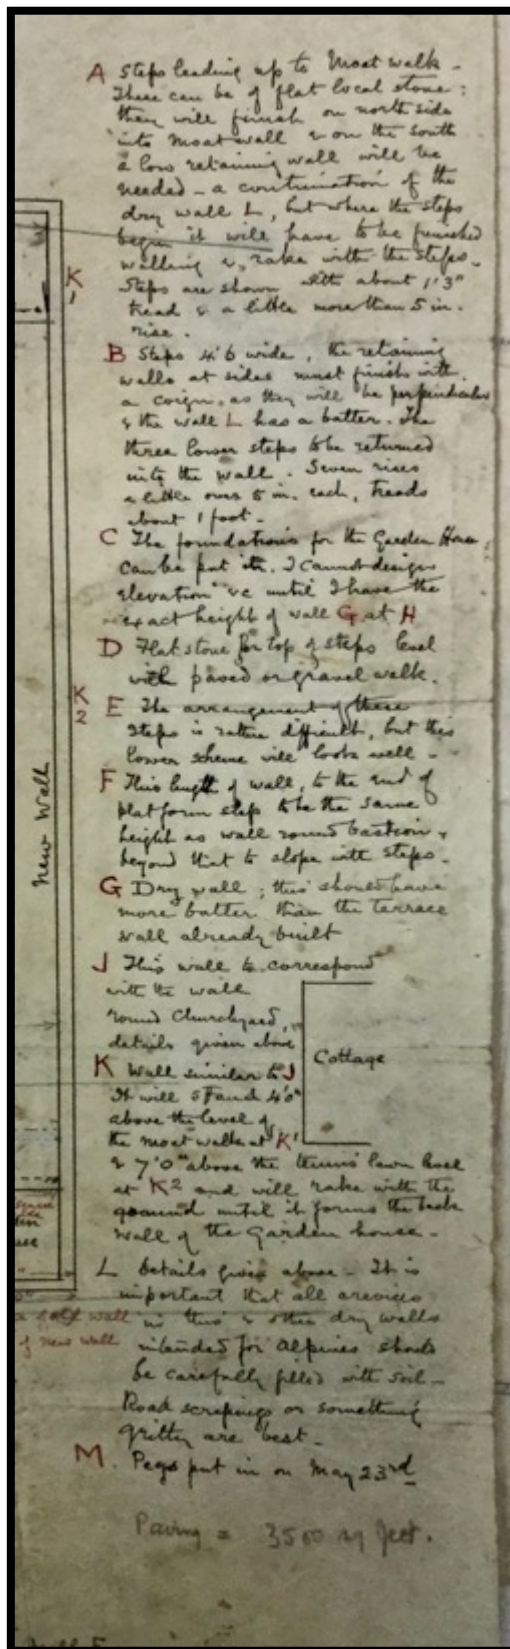 A Steps leading up to Moat walk -
These can be of flat local stone:
they will finish on north side
into moat wall & on the south
a low retaining wall will be
needed - a continuation of the
dry wall L, but where the steps
begin it will have to be finished
walling & rake with the steps.
Steps are shown with about 1'3"
tread & a little more than 5 in.
rise.
K
1
B Steps 4'6 wide, the retaining
walls at sides must finish with
a coign, as they will be perpendicular
& the wall L has a batter. The
three lower steps to be returned
into the wall. Seven rises
a little over 5 in. each, treads
about 1 foot.
C The foundations for the Garden House
can be put in. I cannot design
elevation &c until I have the
exact height of wall G at H
D Flat stone for top of steps level
with paved or gravel walk.
K
2
E The arrangement of these
steps is rather difficult, but this
lower scheme will look well -
F This length of wall, to the end of
platform step to be the same
height as wall round bastion,
beyond that to slope with steps.
New Wall
G Dry wall; this should have
more batter than the terrace
wall already built
J This wall to correspond
with the wall
round Churchyard,
details given above
Cottage
K Wall similar to J
It will stand 4'0"
above the level of
the moat walk at K1
& 7'0" above the tennis lawn level
at K2 and will rake with the
ground until it forms the back
wall of the Garden house -
L Details given above - It is
important that all crevices
in this & other dry walls
intended for Alpines should
be carefully filled with soil -
Road scrapings or something
gritty are best -
wall
of new wall
M. Pegs put in on May 23rd
Paving = 3500 sq feet.